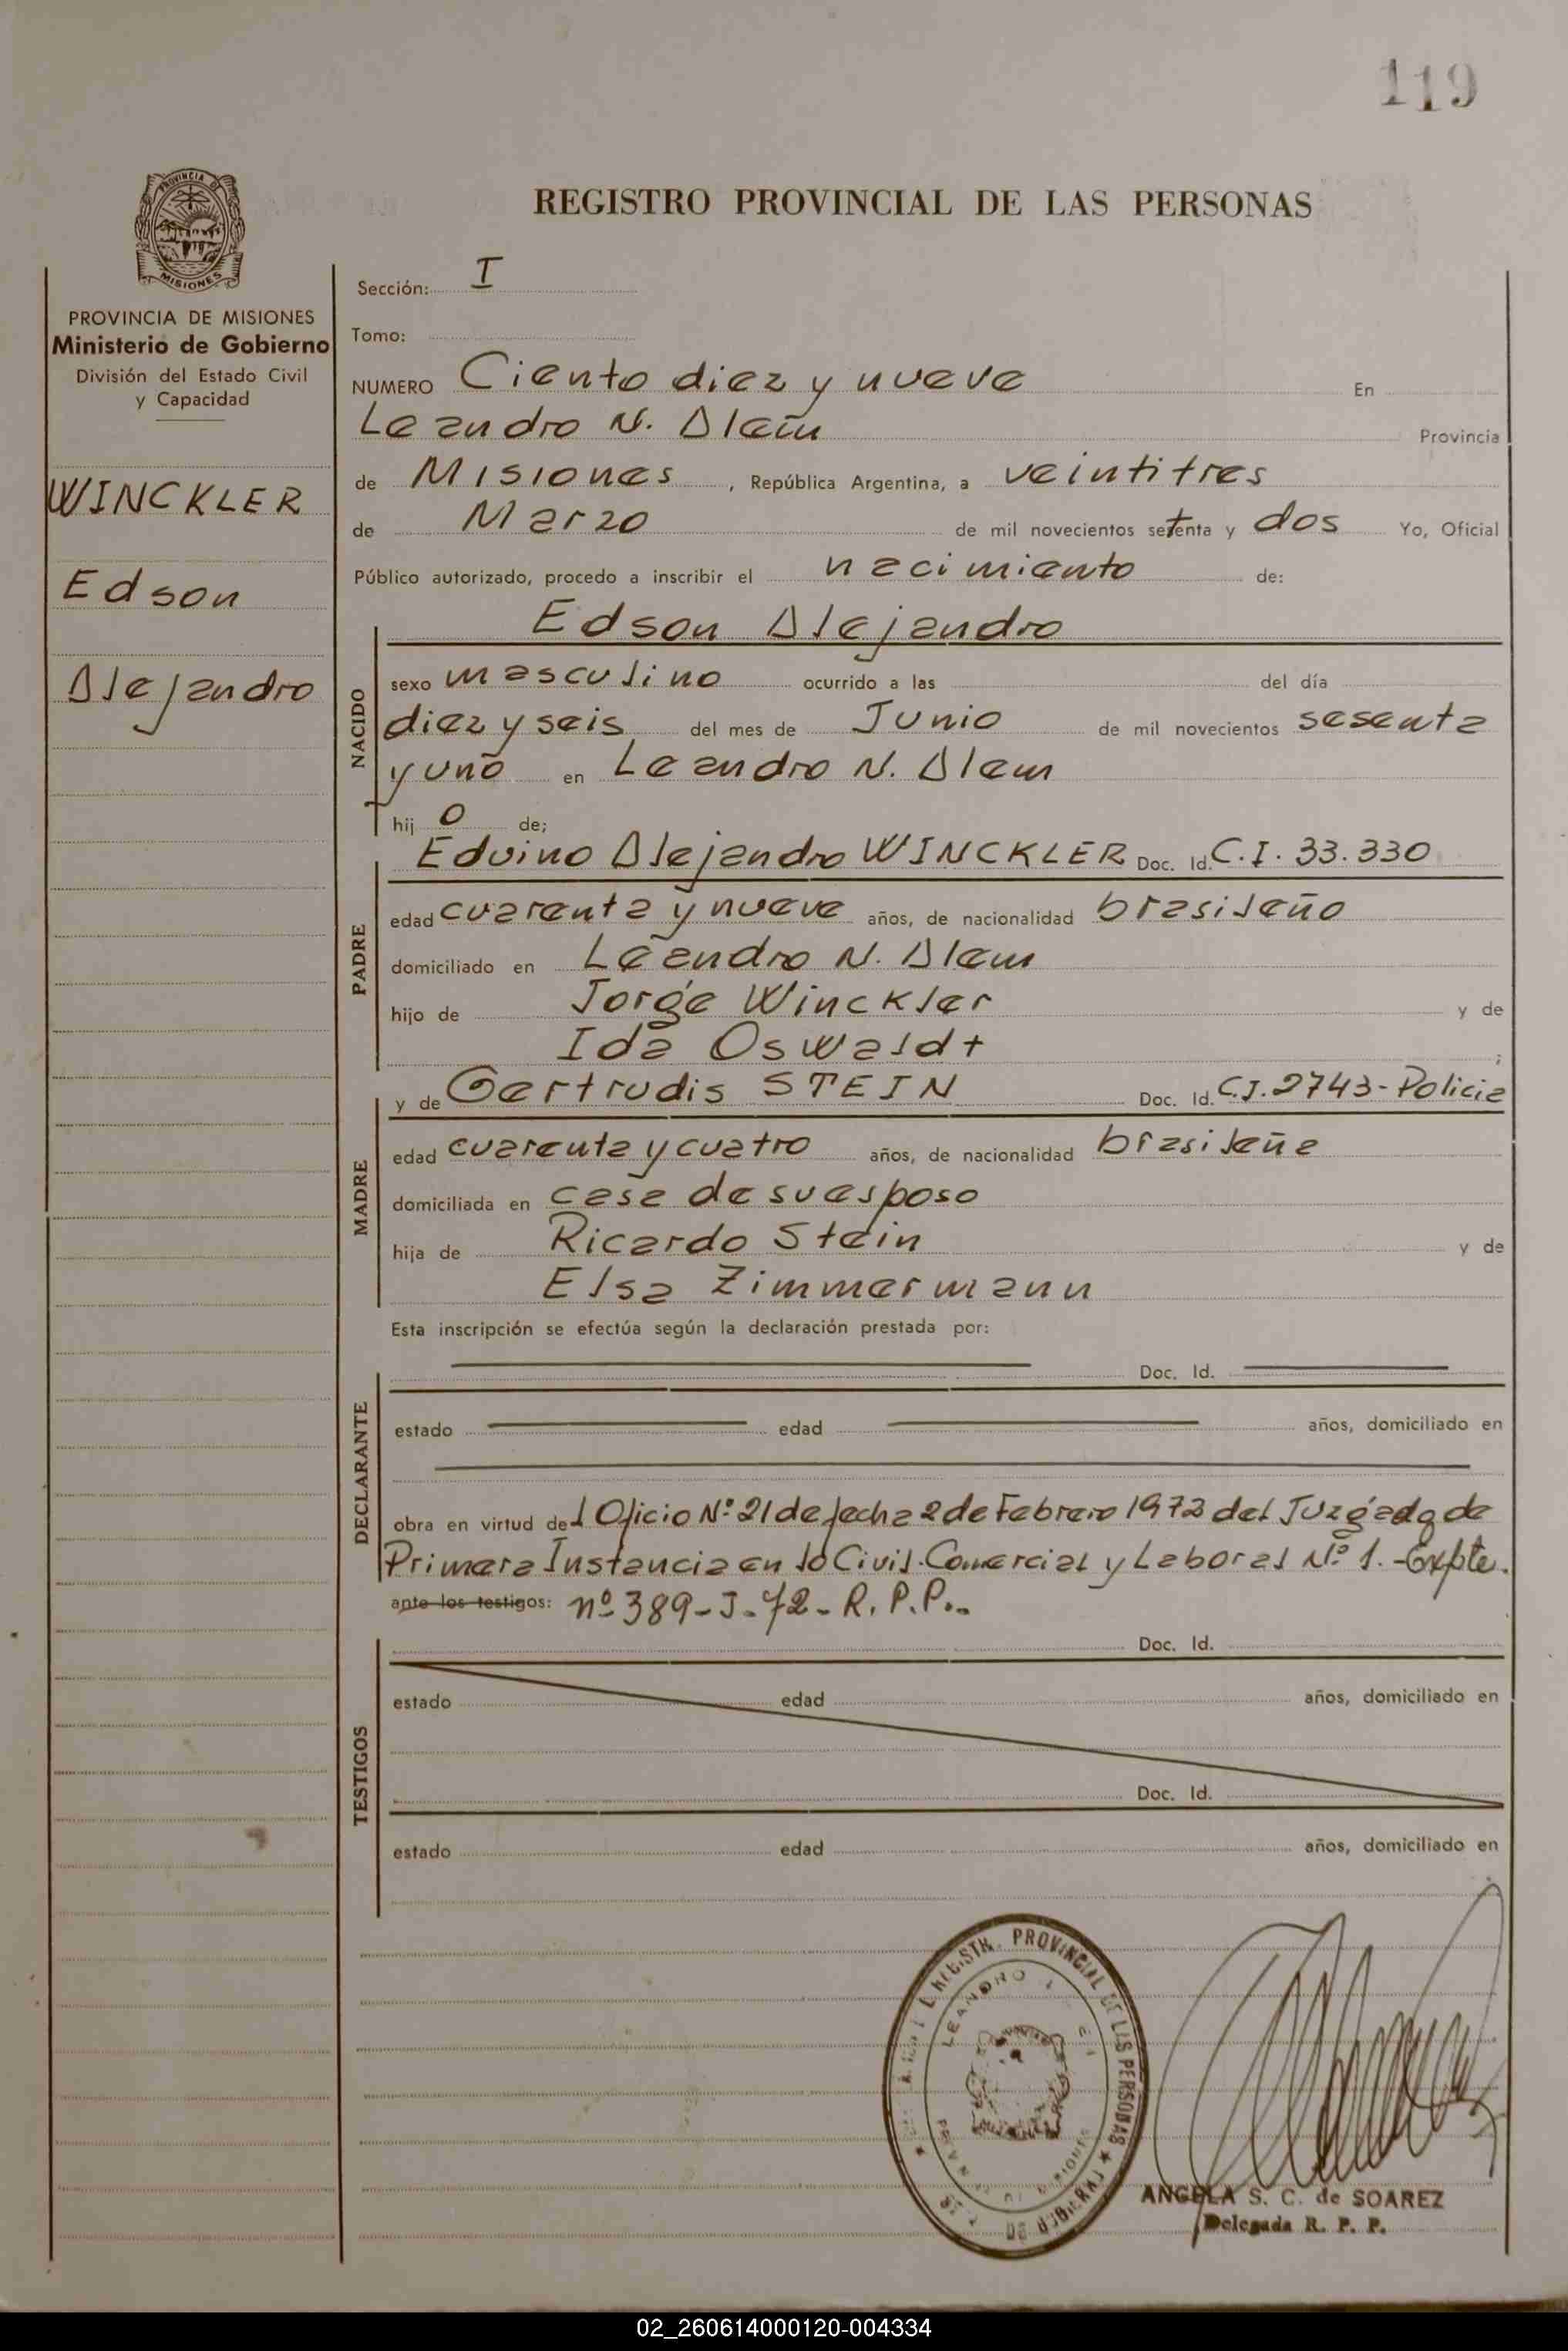 119
REGISTRO PROVINCIAL DE LAS PERSONAS
PROVINCIA DE
MISIONES
PROVINCIA DE MISIONES
Ministerio de Gobierno
División del Estado Civil
y Capacidad
WINCKLER
Edson
Alejandro
Sección: I
Tomo:
NUMERO Ciento diez y nueve En
Leandro N. Alem Provincia
de Misiones, República Argentina, a veintitres
de Marzo de mil novecientos setenta y dos Yo, Oficial
Público autorizado, procedo a inscribir el nacimiento de:
Edson Alejandro
NACIDO
sexo masculino ocurrido a las del día
diez y seis del mes de Junio de mil novecientos sesenta
y uno en Leandro N. Alem
hij o de;
Edvino Alejandro WINCKLER Doc. Id. C.I. 33.330
PADRE
edad cuarenta y nueve años, de nacionalidad brasileño
domiciliado en Leandro N. Alem
hijo de Jorge Winckler y de
Ida Oswaldt ;
y de Gertrudis STEIN Doc. Id. C.I. 2743-Policia
MADRE
edad cuarenta y cuatro años, de nacionalidad brasileña
domiciliada en casa de su esposo
hija de Ricardo Stein y de
Elsa Zimmermann
Esta inscripción se efectúa según la declaración prestada por:
Doc. Id.
DECLARANTE
estado edad años, domiciliado en
obra en virtud del Oficio Nº 21 de fecha 2 de Febrero 1972 del Juzgado de
Primera Instancia en lo Civil. Comercial y Laboral Nº 1. - Expte.
ante los testigos: nº 389-J-72-R.P.P..
Doc. Id.
TESTIGOS
estado edad años, domiciliado en
Doc. Id.
estado edad años, domiciliado en
REGISTR. PROVINCIAL DE LAS PERSONAS
LEANDRO
MISIONES
ANGELA S. C. de SOAREZ
Delegada R. P. P.
02_260614000120-004334